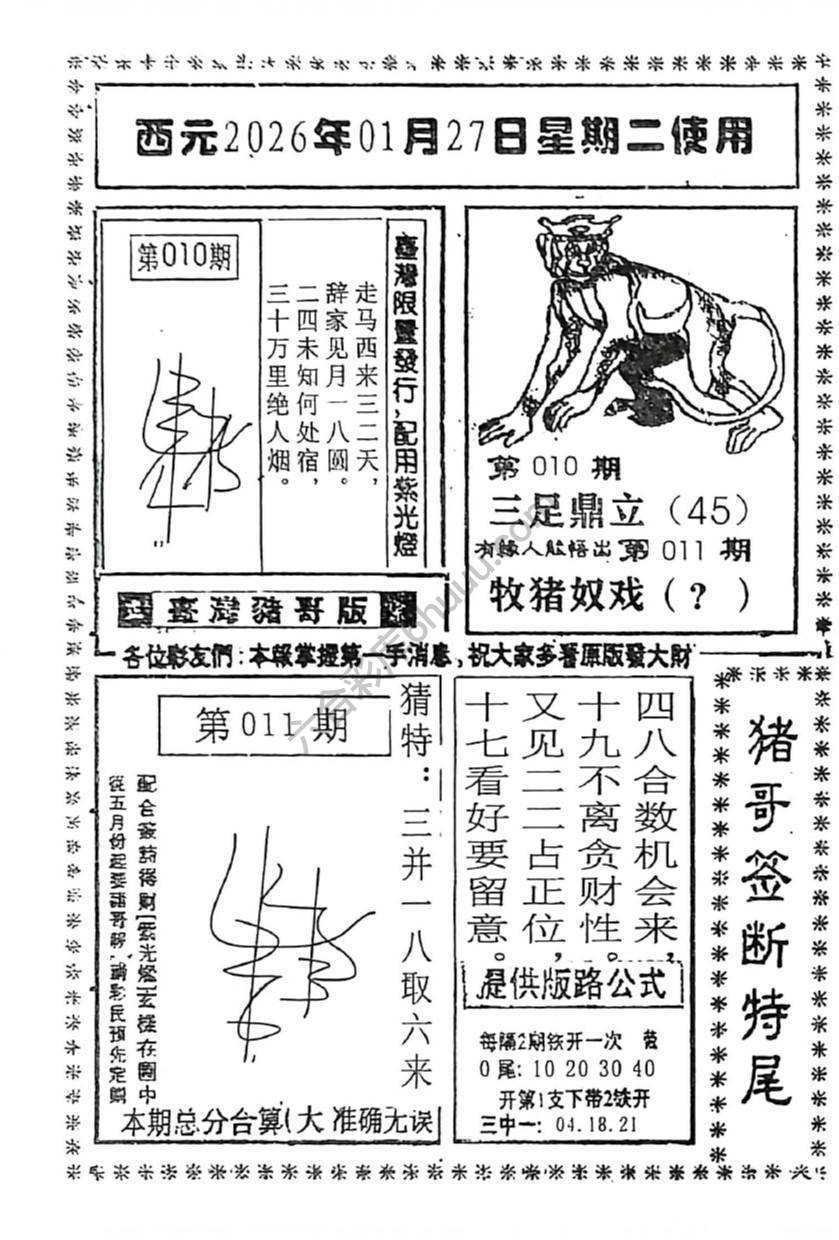 西元2026年01月27日星期二使用
第010期
臺灣限量發行,配用紫光燈
走马西来三二天,
辞家见月一八圆。
二四未知何处宿,
三十万里绝人烟。
第 010 期
三足鼎立（45）
有緣人能悟出 第 011 期
牧猪奴戏（？）
臺灣豬哥版
各位彩友們:本報掌握第一手消息,祝大家多看原版發大財
第 011 期
猜特：三并一八取六来
從五月份起要豬哥報,請彩民預先定購
本期总分合算(大 准确无误
四八合数机会来,
十九不离贪财性。
又见二二占正位,
十七看好要留意。
提供版路公式
每隔2期铁开一次
0尾: 10 20 30 40
开第1支下带2铁开
三中一: 04.18.21
猪哥签断特尾
六合彩库6huuu.com